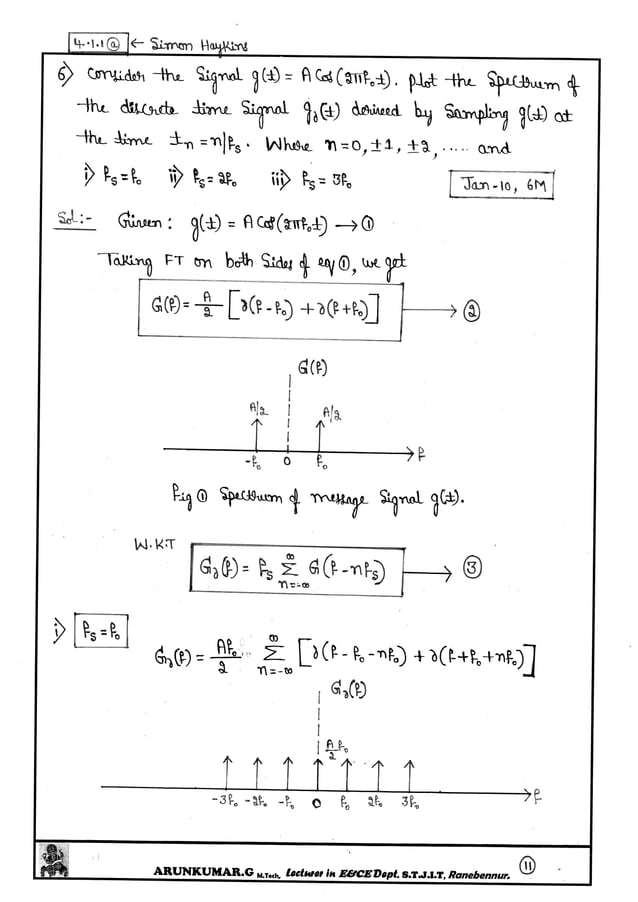 4.1.1ⓐ ← Simon Haykins
6) Consider the Signal g(t) = A Cos(2πf₀t). Plot the Spectrum of
the discrete time Signal g_δ(t) derived by Sampling g(t) at
the time t_n = n/f_s. Where n = 0, ±1, ±2, ..... and
i) f_s = f₀ ii) f_s = 2f₀ iii) f_s = 3f₀
Jan-10, 6M
Sol:- Given: g(t) = A Cos(2πf₀t) → ①
Taking FT on both Sides of eq ①, we get
G(f) = A/2 [δ(f - f₀) + δ(f + f₀)] → ②
G(f)
A/2 A/2
-f₀ 0 f₀ f
Fig ① Spectrum of message Signal g(t).
W.K.T
G_δ(f) = f_s ∑_{n=-∞}^{∞} G(f - nf_s) → ③
i) f_s = f₀
G_δ(f) = Af₀/2 ∑_{n=-∞}^{∞} [δ(f - f₀ - nf₀) + δ(f + f₀ + nf₀)]
G_δ(f)
A/2 f₀
-3f₀ -2f₀ -f₀ 0 f₀ 2f₀ 3f₀ f
ARUNKUMAR.G M.Tech, Lecturer in E&CE Dept. S.T.J.I.T, Ranebennur.
11